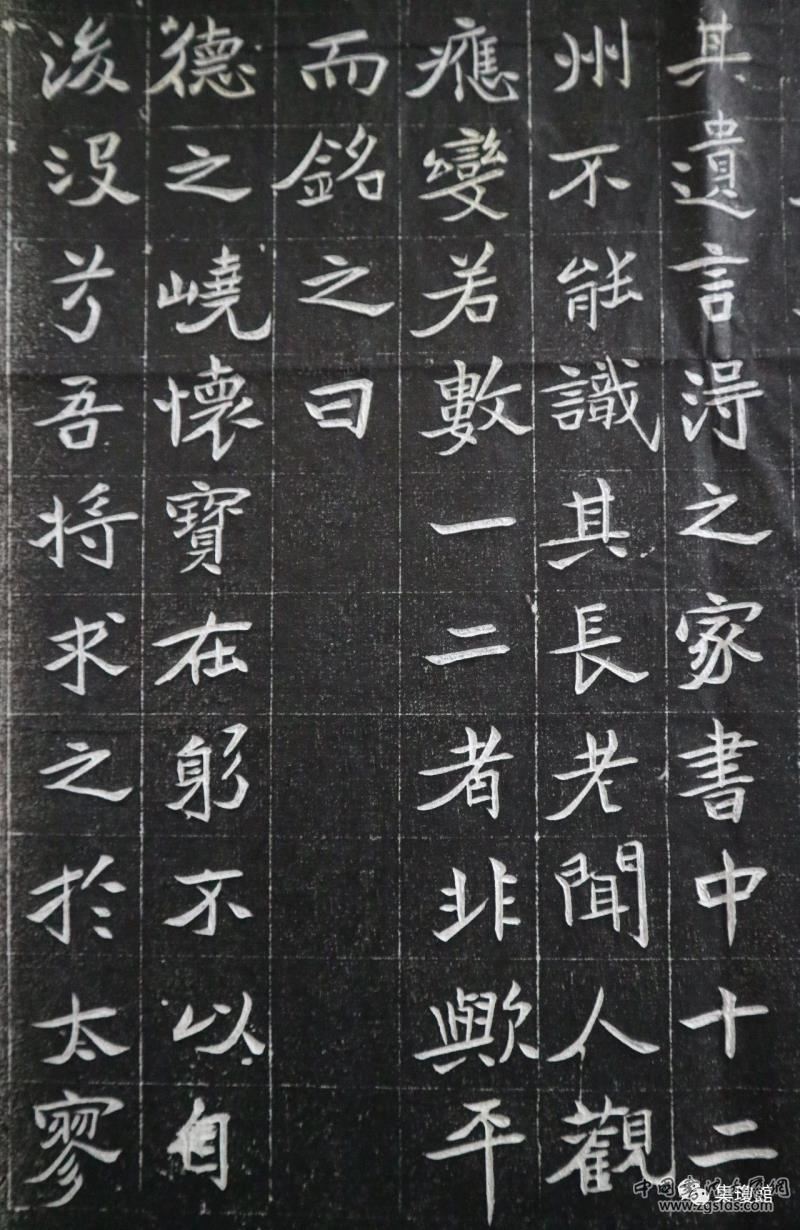 其遺言淂之家書中十二
州不能識其長老聞人觀
應變若數一二者非歟平
而銘之曰
德之嶢懷寶在躬不以自
後没兮吾将求之於太寥
集瓊館
www.zgsfds.com